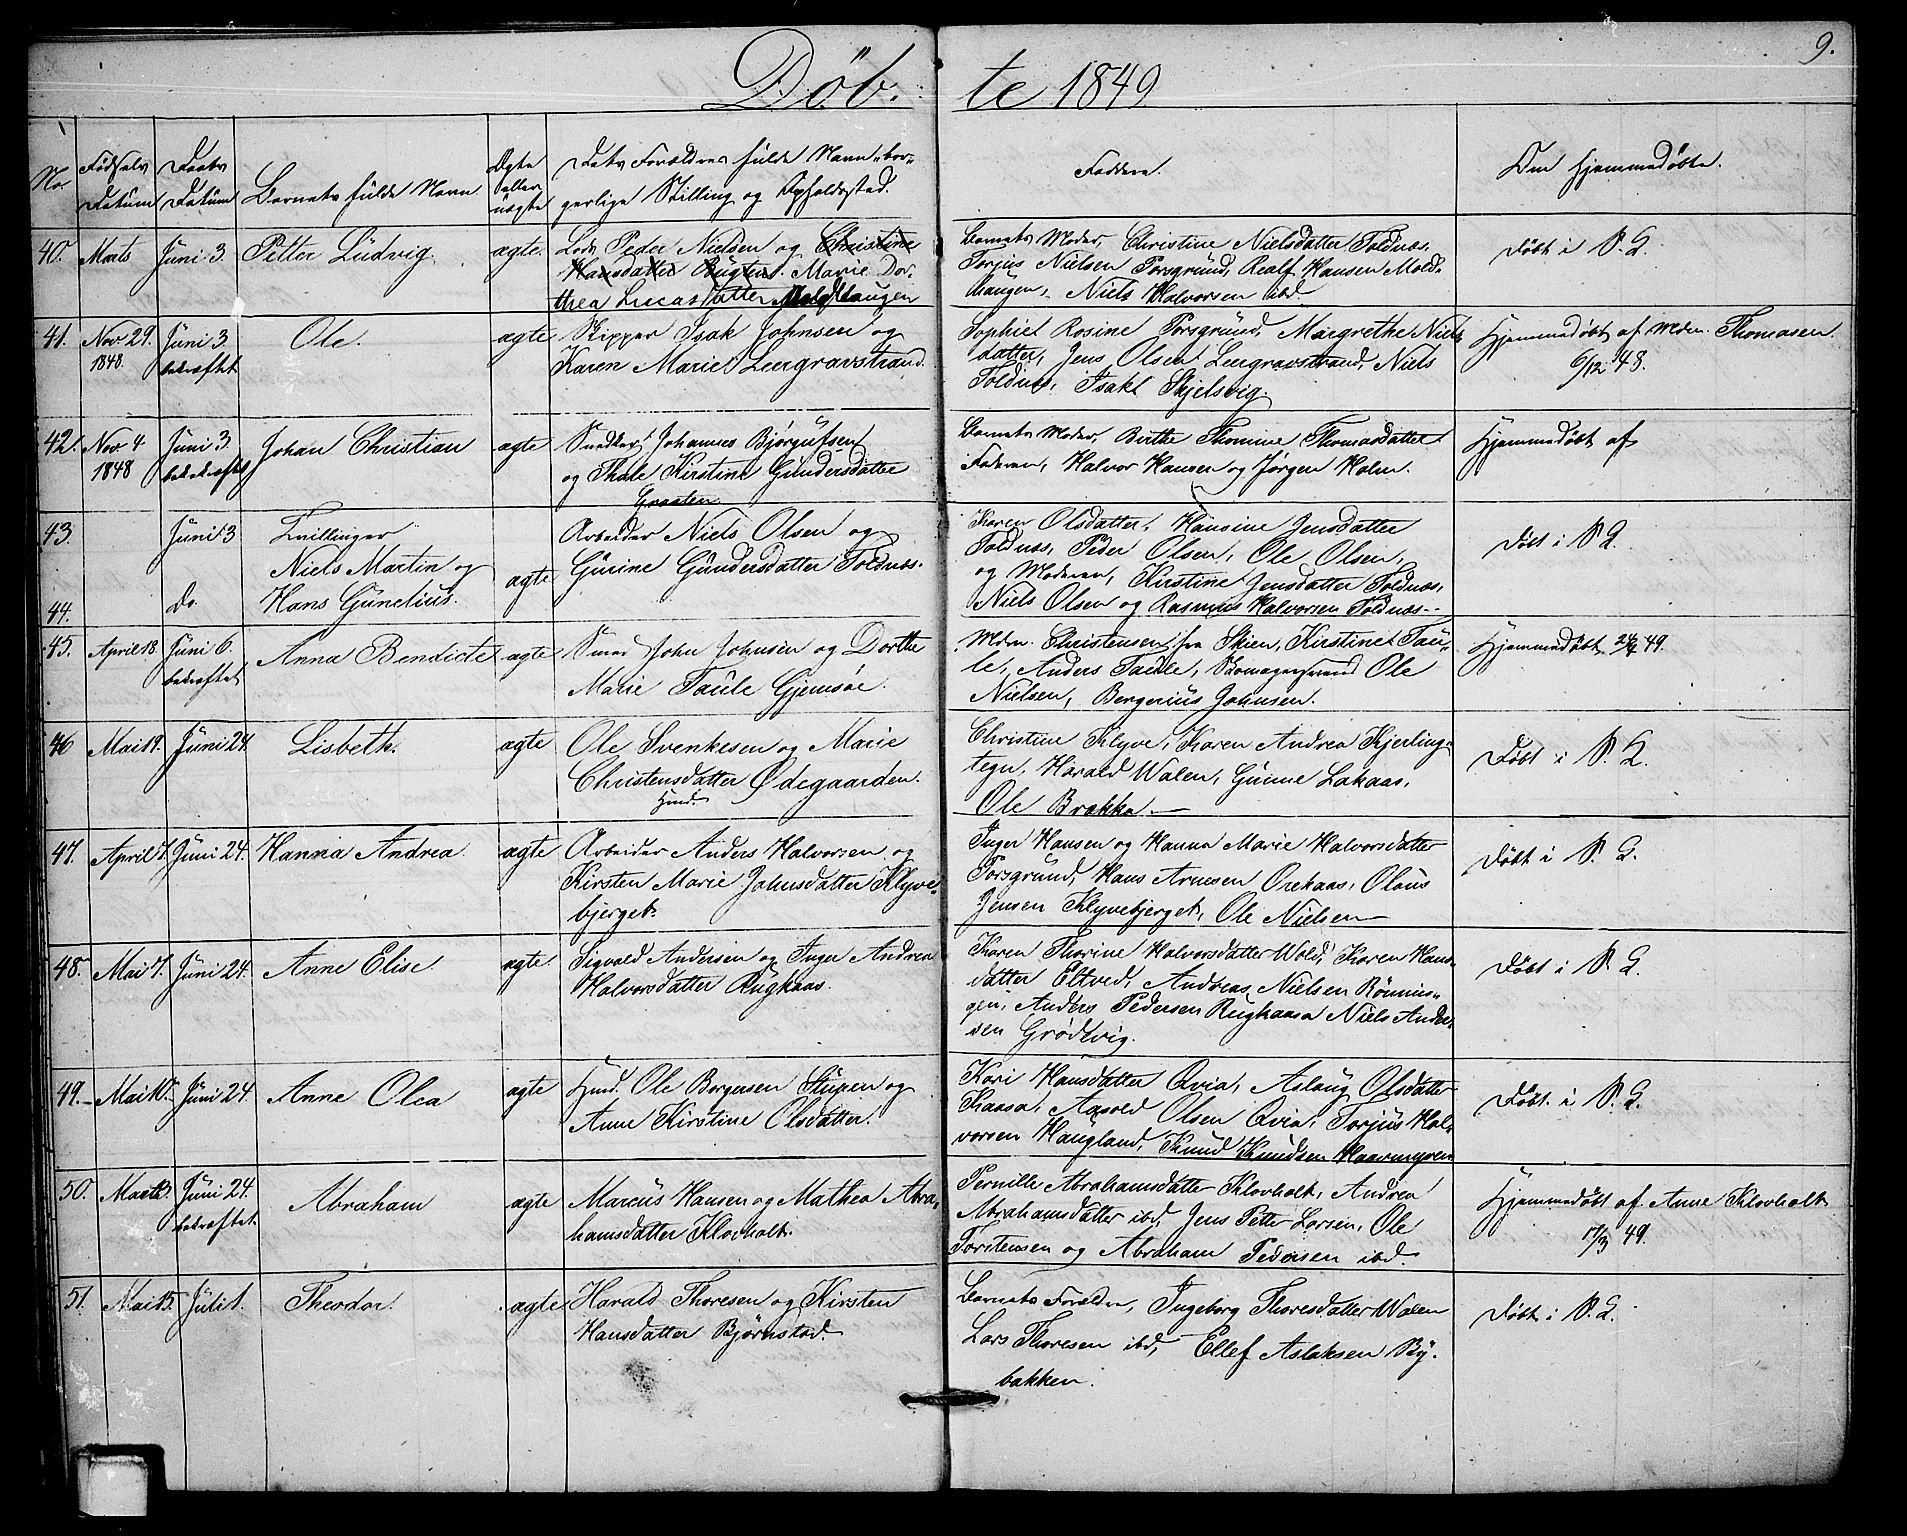 9.
Döb. te 1849
No. Födsels Datum Daabs Datum Barnets fulde Navn. Ægte eller uægte Dets Forældres fulde Navn, borgerlige Stilling og Opholdssted. Faddere. Den hjemmedöbte.
40. Marts Juni 3. Petter Ludvig. ægte. Lods Peder Nielsen og Christine
Hansdatter Marie Dor-
thea Lucasdatter Moldhaugen
Barnets Moder, Christine Nielsdatter Toldnæs,
Torjus Nielsen Porsgrund, Realf Hansen Mold-
haugen, Niels Halvorsen ibd.
Döbt i P. G.
41. Nov 29. 1848. Juni 3. bekræftet Ole. ægte Skipper Isak Johnsen og
Karen Marie Leergravstrand.
Sophie Rosine Porsgrund, Margrethe Niels-
datter, Jens Olsen Leergravstrand, Niels
Toldnæs, Isak Skjelsvig.
Hjemmedöbt af Mdm. Thomasen.
6/12 48.
42. Nov. 4 1848 Juni 3 bekræftet Johan Christian ægte Snedker Johannes Bjørgulfsen
og Thale Kirstine Gundersdatter
Graaten
Barnets Moder, Birthe Thomine Thomasdatter
Faderen, Halvor Hansen og Jørgen Holm.
Hjemmedöbt af
43. Juni 3 Tvillinger
Niels Martin og
44. Do. Hans Gunelius.
ægte
Arbeider Niels Olsen og
Gurine Gundersdatter Toldnæs.
Karen Olsdatter, Hansine Jensdatter
Toldnæs, Peder Olsen, Ole Olsen,
og Moderen, Kirstine Jensdatter Toldnæs,
Niels Olsen og Rasmus Halvorsen Toldnæs.
Döbt i P. G.
45. April 18. Juni 6. bekræftet Anna Bendicte ægte Smed John Johnsen og Dorthe
Marie Taule Gjemsøe.
Mdm. Christensen fra Skien, Kirstine Tau-
le, Anders Taule, Skomagersvend Ole
Nielsen, Bergerius Johnsen.
Hjemmedöbt 24/4 49.
46 Mai 19. Juni 24. Lisbeth. ægte Ole Svenkesen og Marie
Christensdatter Ødegaarden.
Hmd.
Christine Klyve, Karen Andrea Kjerling-
tegn, Harald Walen, Gunne Lakaas,
Ole Brakka.
Döbt i P. G.
47. April 7. Juni 24. Hanna Andrea. ægte Arbeider Anders Halvorsen og
Kirsten Marie Johnsdatter Klyve-
bjerget.
Inger Hansen og Hanna Marie Halvorsdatter
Porsgrund, Hans Arnesen Orekaas, Olaus
Jensen Klyvebjerget, Ole Nielsen
Döbt i P. G.
48. Mai 7. Juni 24. Anne Elise. ægte. Sigvald Andersen og Inger Andrea
Halvorsdatter Rugkaas.
Karen Thorine Halvorsdatter Wold, Karen Hans-
datter Eltved, Andreas Nielsen Rønnin-
gen, Anders Pedersen Rugkaasa Niels Ander-
sen Grødtvig.
Döbt i P. G.
49. Mai 10. Juni 24 Anne Olea ægte Hmd. Ole Borgersen Stupen og
Anne Kirstine Olsdatter.
Kari Hansdatter Qvia, Aslaug Olsdatter
Kaasa, Aasold Olsen Qvia, Torjus Hal-
vorsen Haugland, Knud Knudsen Haavmyren
Döbt i P. G.
50. Marts Juni 24. bekræftet Abraham ægte Marcus Hansen og Mathea Abra-
hamsdatter Klovholt.
Pernille Abrahamsdatter Klovholt, Andrea
Abrahamsdatter ibd, Jens Petter Larsen, Ole
Torstensen og Abraham Pedersen ibd.
Hjemmedöbt af Anne Klovholt
17/3 49.
51. Mai 15. Juli 1. Theodor. ægte Harald Thoresen og Kirsten
Hansdatter Bjørnstad
Barnets Forældre, Ingeborg Thoresdatter Walen
Lars Thoresen ibd, Ellef Aslaksen By-
bakken.
Döbt i P. G.